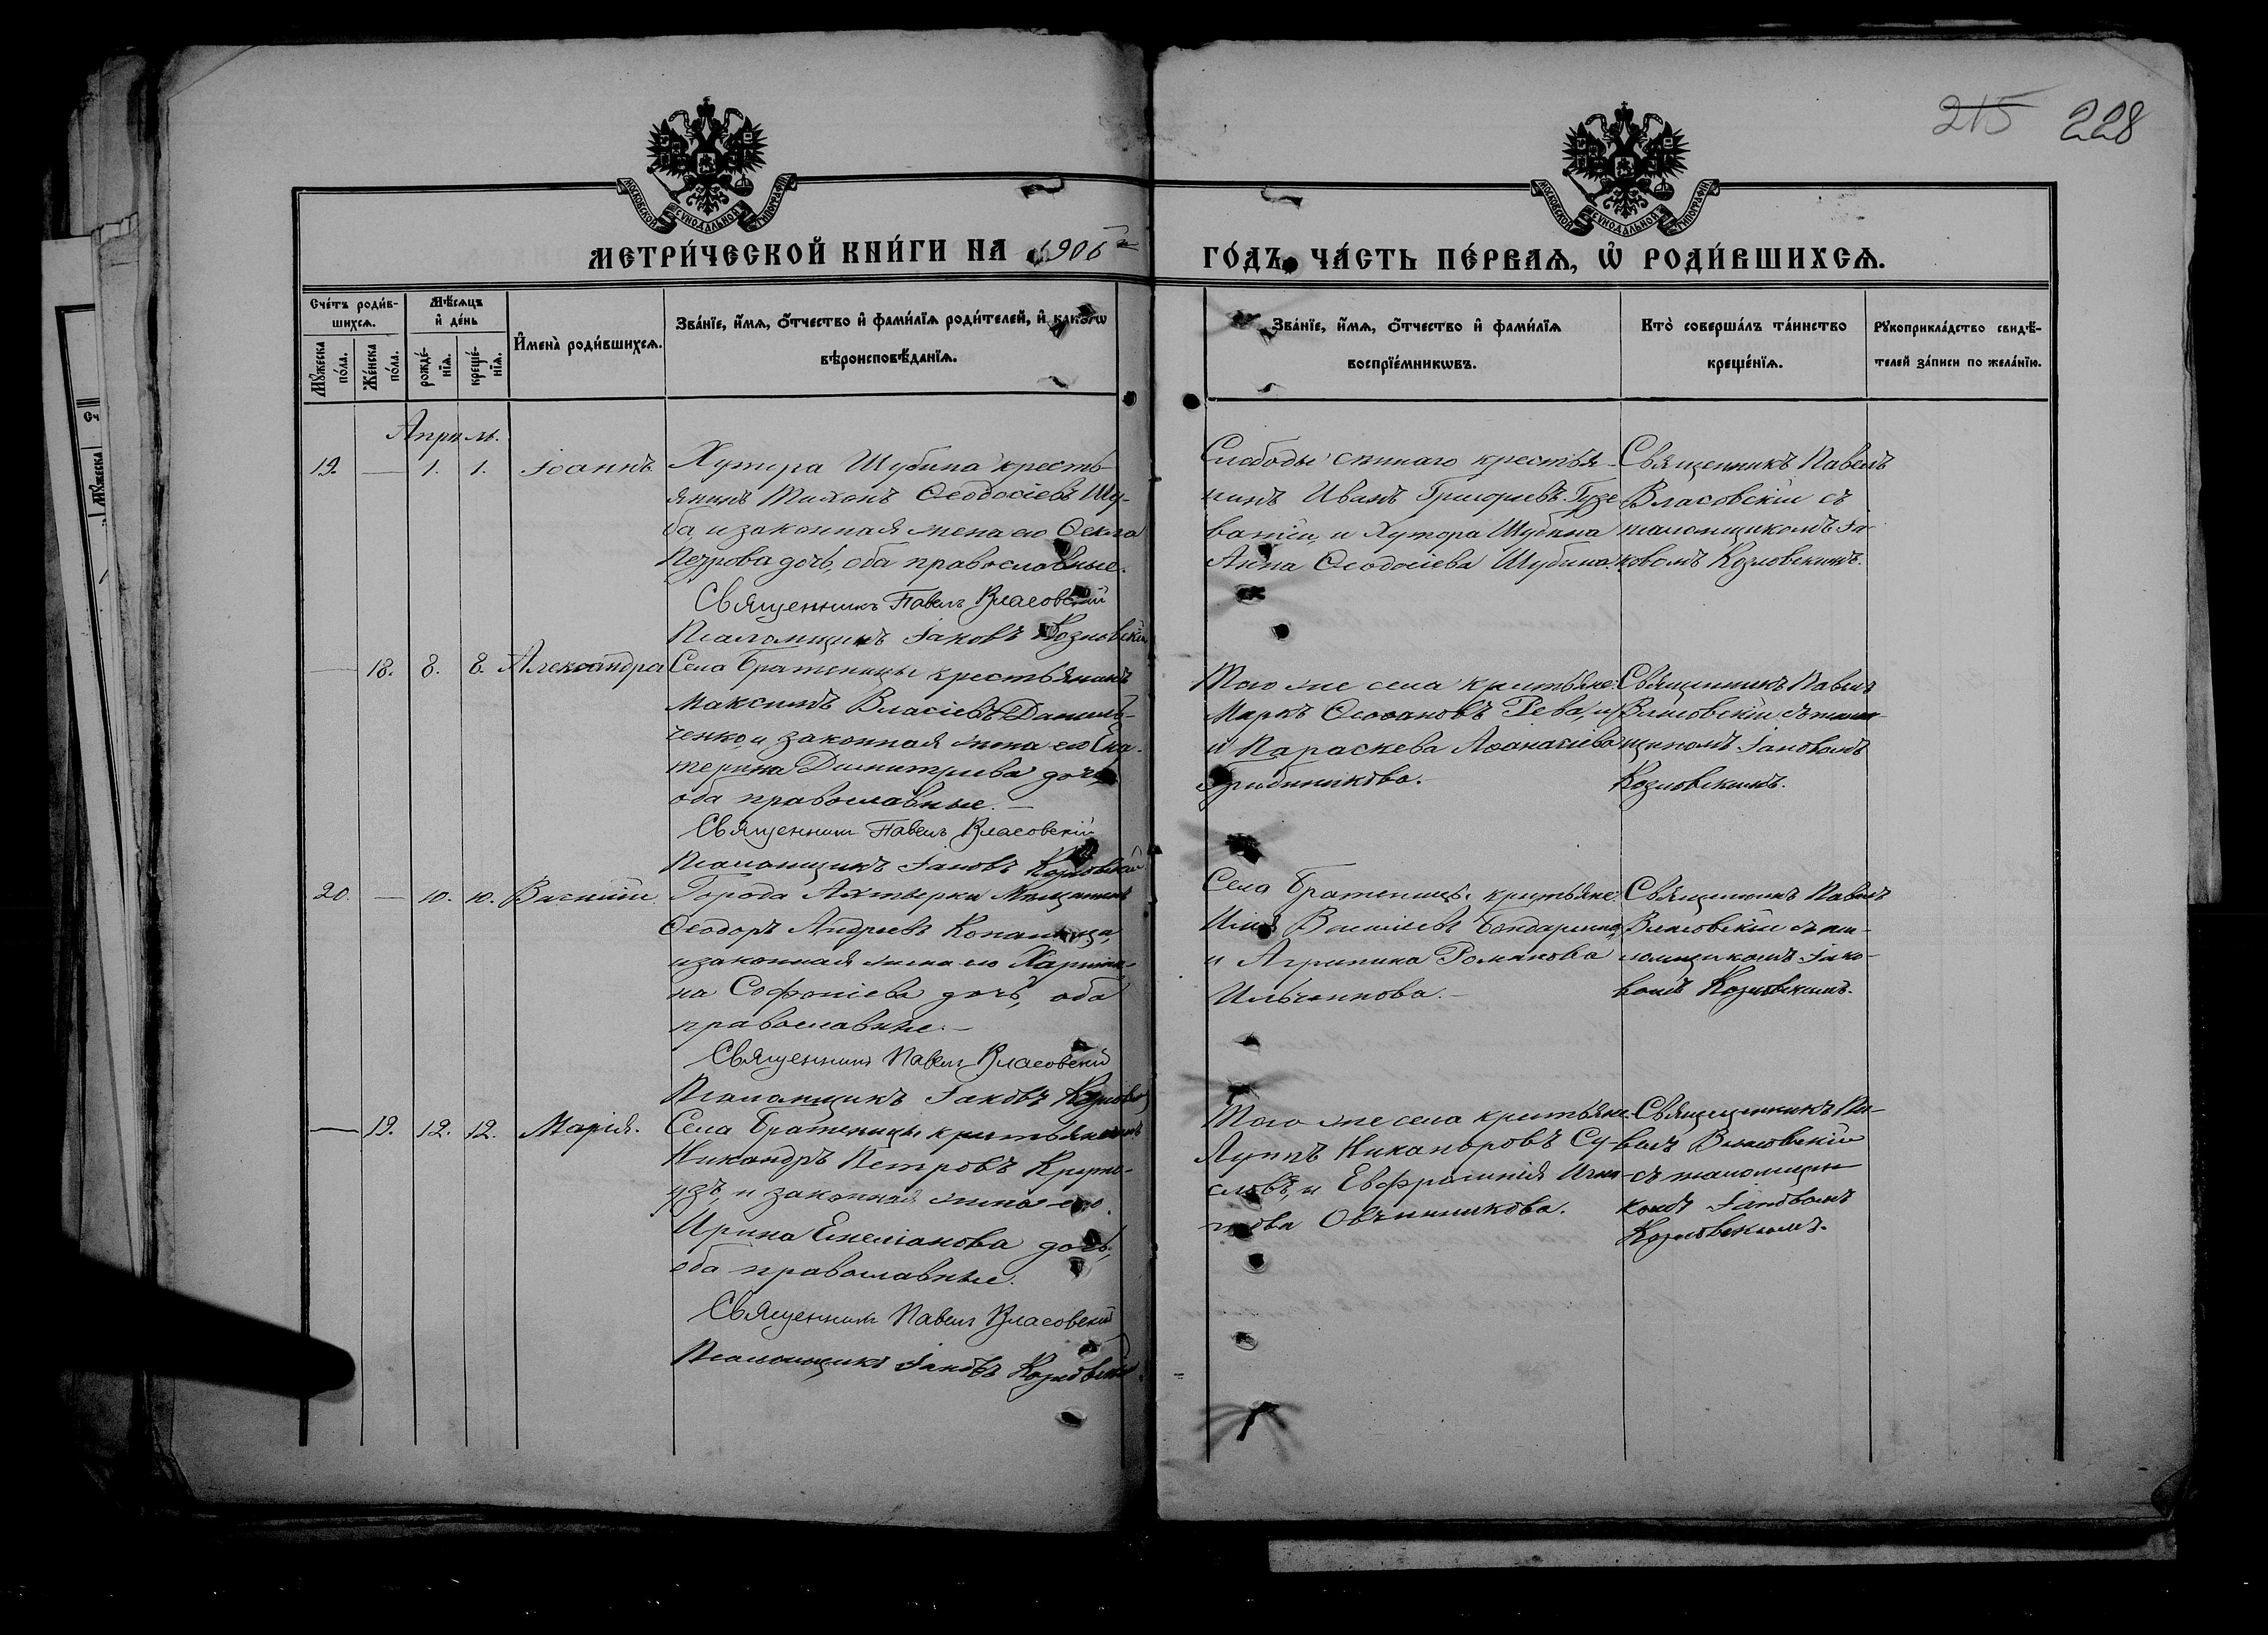 215 228
МОСКОВСКОЙ СѴНОДАЛЬНОЙ ТИПОГРАФІИ
МОСКОВСКОЙ СѴНОДАЛЬНОЙ ТИПОГРАФІИ
МЕТРИ́ЧЕСКОЙ КНИ́ГИ НА 1906 ГО́ДЪ, ЧА́СТЬ ПЕ́РВАѦ, Ѡ РОДИ́ВШИХСѦ.
Сче́тъ роди́в-
шихсѧ.
Мꙋ́жеска по́ла.
Же́нска по́ла.
Мѣ́сѧцъ
и҆ де́нь
рожде́-
нїѧ.
креще́-
нїѧ.
И҆мена̀ роди́вшихсѧ.
Зва́нїе, и҆́мѧ, ѻ҆́тчество и҆ фами́лїѧ роди́телей, и҆ како́гѡ
вѣроисповѣ́данїѧ.
Зва́нїе, и҆́мѧ, ѻ҆́тчество и҆ фами́лїѧ
воспрїе́мникѡвъ.
Кто̀ соверша́лъ та́инство
креще́нїѧ.
Рꙋкоприкла́дство свидѣ́-
телей за́писи по жела́нїю.
Апрѣль.
19. — 1. 1. Іоаннъ
Хутора Шубина кресть-
янинъ Тихонъ Ѳеодосіевъ Шу-
ба, и законная жена его Ѳекла
Петрова дочь, оба православные.
Священникъ Павелъ Власовскій
Псаломщикъ Іаковъ Козловскій
Слободы крестья-
нинъ Иванъ Григорьевъ
и Хутора Шубина
Анна Ѳеодосіева Шубина.
Священникъ Павелъ
Власовскій съ
псаломщикомъ Іа-
ковомъ Козловскимъ.
— 18. 8. 8. Александра
Села Братеницы крестьянинъ
Максимъ Власіевъ Даниль-
ченко, и законная жена его Ека-
терина Димитріева дочь,
оба православные. —
Священникъ Павелъ Власовскій
Псаломщикъ Іаковъ Козловскій
Того же села крестьяне:
Маркъ Рева,
и Параскева Аѳанасіева
Священникъ Павелъ
Власовскій съ псалом-
щикомъ Іаковомъ
Козловскимъ.
20. — 10. 10. Василій
Города Ахтырки Мѣщанинъ
Ѳеодоръ Андреевъ
и законная жена его Харити-
на Софоніева дочь, оба
православные. —
Священникъ Павелъ Власовскій
Псаломщикъ Іаковъ Козловскій
Села Братеницы крестьяне:
Илья Василіевъ Бондаренко,
и Агрипина Романова
Ильченкова. —
Священникъ Павелъ
Власовскій съ пса-
ломщикомъ Іако-
вомъ Козловскимъ.
— 19. 12. 12. Марія.
Села Братеницы крестьянинъ
Никандръ Петровъ
и законная жена его
Ирина Емеліанова дочь,
оба православные.
Священникъ Павелъ Власовскій
Псаломщикъ Іаковъ Козловскій
Того же села крестьяне:
Луппъ Никаноровъ Су-
словъ, и Евфросинія Игна-
това Овчинникова.
Священникъ Па-
велъ Власовскій
съ псаломщи-
комъ Іаковомъ
Козловскимъ.